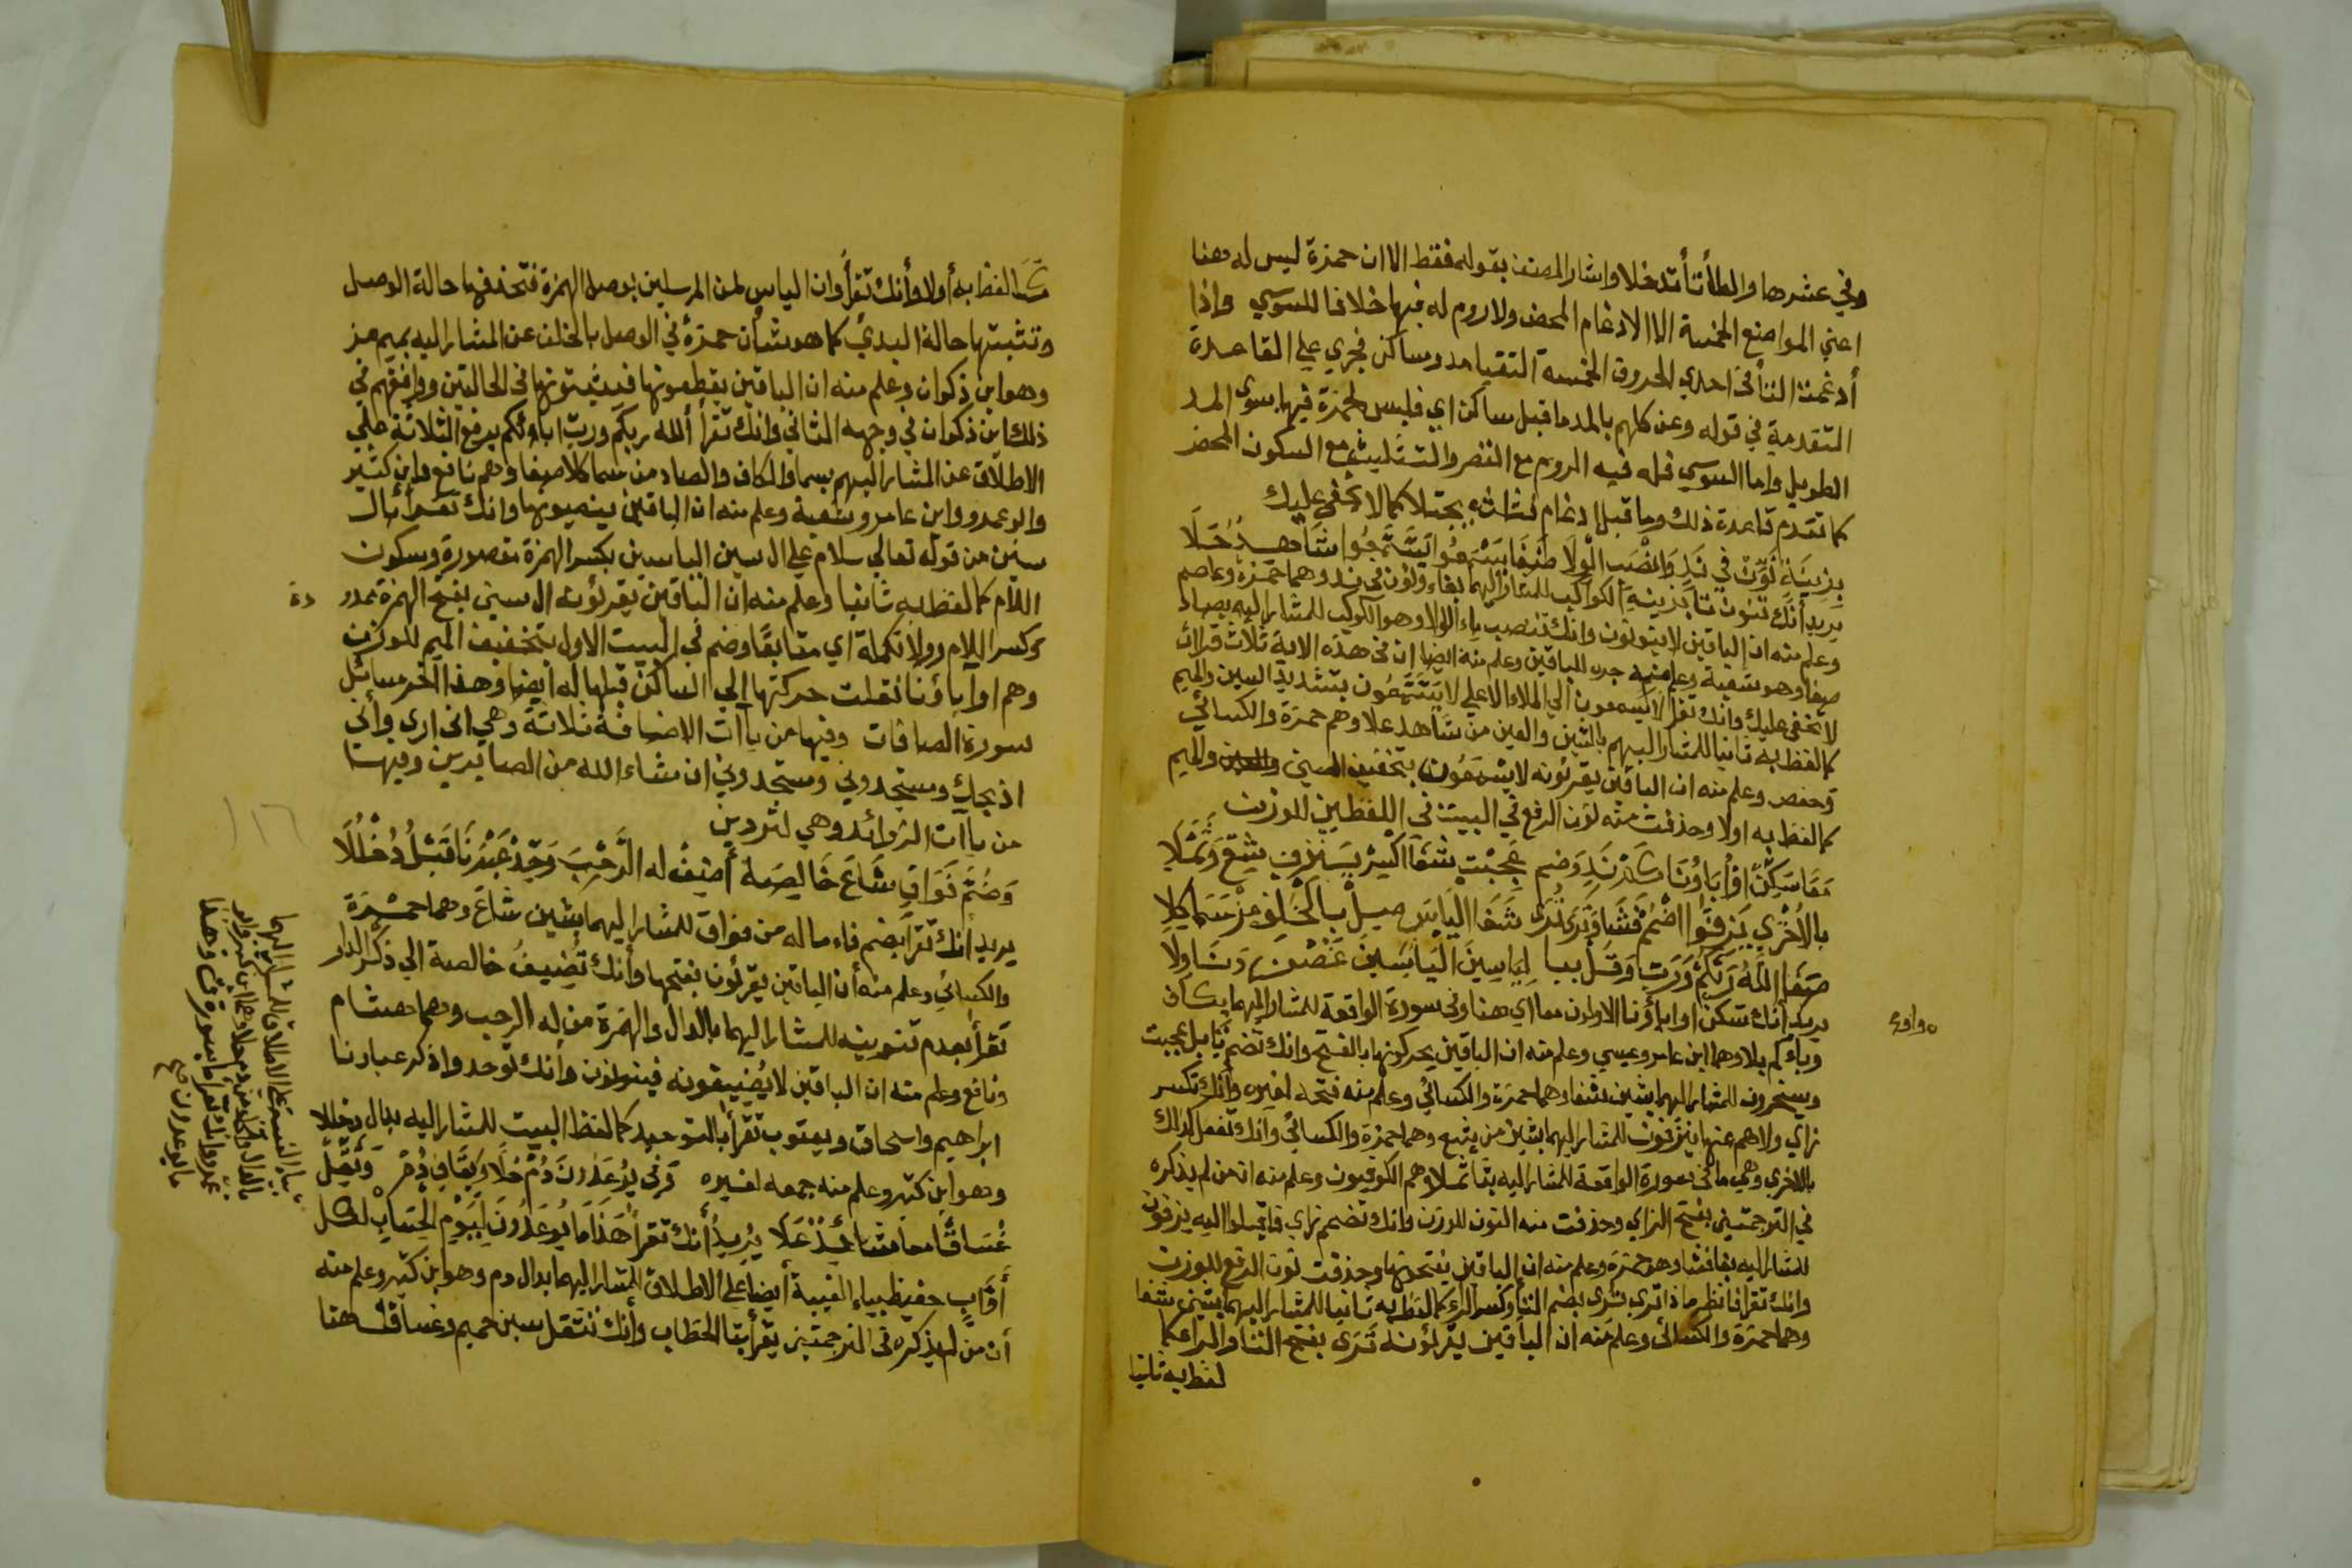 وفي عشرها والطا تاتدخلا واشار المصنف بقوله فقط الا ان حمزة ليس له هنا
اعني المواضع الخمسة الا الادغام المحض ولا روم له فيها خلافا للسوسي واذا
أدغمت التا في احدي الحروف الخمسة التقيا مد وساكن فجري علي القاعدة
المتقدمة في قوله وعن كلهم بالمد ما قبل ساكن اي فليس لحمزة فيها سوي المد
الطويل واما السوسي فله فيه الروم مع القصر والتثليث مع السكون المحض
كما تقدم قاعدة ذلك وما قبل ادغام نثاث يجتلا كما لا يخفي عليك
بزينة نون في ند وانصب الولا صفا يسمعوا يسمعوا شاهد علا
يريد أنك تنون تا بزينة الكواكب للمشار اليهما بفاء ونون في ند وهما حمزة وعاصم
وعلم منه ان الباقين لا ينونون وانك تنصب باء الولا وهو الكوكب للمشار اليه بصاد
صفا وهو شعبة وعلم منه جره للباقين وعلم منه ايضا ان في هذه الاية ثلاث قرائت
لا تخفي عليك وانك تقرأ لا يسمعون الي الملا الاعلي لا يتسمعون بتشديد السين والميم
كما لفظ به ثانيا للمشار اليهم بالشين والعين من شاهد علا وهم حمزة والكسائي
وحفص وعلم منه ان الباقين يقرئونه لا يسمعون بتخفيف السين والميم
كما لفظ به اولا وحذفت منه نون الرفع في البيت في اللفظين للوزن
معا سكن او اباؤنا كم بلا وضم عجبت شفا اكسر ينزفون يتبع وثملا
بالاخري يزفوا اضمم فشا وتري تري شفا الياس صل بالخلف من سما كلا
صفا الله ربكم ورب وقل بيا لياسين الياسين عن ولا
يريد أنك تسكن اواباؤنا الاولون معا اي هنا وفي سورة الواقعة للمشار اليهما بكاف
وباء كم بلا وهما ابن عامر وعيسي وعلم منه ان الباقين يحركونها بالفتح وانك تضم تا بل عجبت
ويسخرون للمشار اليهما بشين شفا وهما حمزة والكسائي وعلم منه فتحه لغيره وأنك تكسر
زاي ولا هم عنها ينزفون للمشار اليهما بشين من يتبع وهما حمزة والكسائي وانك تفعل كذلك
بالاخري وهي ما في سورة الواقعة للمشار اليه بثا ثملا وهم الكوفيون وعلم منه ان من لم يذكره
في الترجمتين بفتح الزاي وحذفت منه النون للوزن وانك تضم زاي فاقبلوا اليه يزفون
للمشار اليه بفا فشا وهو حمزة وعلم منه ان الباقين يفتحونها وحذفت نون الرفع للوزن
وانك تقرا فانظر ماذا تري تري بضم التا وكسر الراء كما لفظ به ثانيا للمشار اليهما بشين شفا
وهما حمزة والكسائي وعلم منه ان الباقين يقرئونه تري بفتح التا والرا كما
لفظ به ثانيا
لفظ به أولا وأنك تقرأ وان الياس لمن المرسلين بوصل الهمزة فتحذفها حالة الوصل
وتثبتها حالة البدئ كما هو شأن حمزة في الوصل بالخلف عن المشار اليه بميم من
وهو ابن ذكوان وعلم منه ان الباقين يقطعونها فيثبتونها في الحالتين ووافقهم في
ذلك ابن ذكوان في وجهه الثاني وانك تقرأ ألله ربكم ورب ابائكم برفع الثلاثة علي
الاطلاق عن المشار اليهم بسما والكاف والصاد من سما كلا صفا وهم نافع وابن كثير
وابو عمرو وابن عامر وشعبة وعلم منه ان الباقين ينصبونها وانك تقرأ بال
سين من قوله تعالي سلام علي ال سين الياسين بكسر الهمزة مقصورة وسكون
اللام كما لفظ به ثانيا وعلم منه ان الباقين يقرئون ال سين بفتح الهمزة ممدو
دة
وكسر اللام وولا تكملة اي متابعًا وضم في البيت الاول بتخفيف الميم للوزن
وهم اواباؤنا نقلت حركتها الي الساكن قبلها له ايضا وهذا اخر مسائل
سورة الصافات وفيها من ياآت الاضافة ثلاثة وهي اني اري وأني
اذبحك وستجدوني وستجدوني ان شاء الله من الصابرين وفيها
من ياآت الزوائد وهي لتردين
وضم فواق شاع خالصة أضيف له الرحب وحد عبدنا قبل دخللا
يريد أنك تقرأ بضم فاء ماله من فواق للمشار اليهما بشين شاع وهما حمزة
والكسائي وعلم منه أن الباقين يقرئون بفتحها وأنك تضيف خالصة الي ذكر الدار
تقرأ بعدم تنوينه للمشار اليهما بالدال والهمزة من له الرحب وهما هشام
ونافع وعلم منه ان الباقين لا يضيفونه فينونون وانك توحد واذكر عبادنا
ابراهيم واسحاق ويعقوب تقرأ بالتوحيد كما لفظ البيت للمشار اليه بدال دخللا
وهو ابن كثير وعلم منه جمعه لغيره وفي يوعدون دم حلا وبقاف دم وثقل
غساقا معا شائد علا يريد أنك تقرأ هذا ما يوعدون ليوم الحساب لكل
أواب حفيظ بياء الغيبة أيضا علي الاطلاق للمشار اليهما بدال دم وهو ابن كثير وعلم منه
أن من لم يذكره في الترجمتين يقرأ بتا الخطاب وأنك تثقل سين حميم وغساق هنا